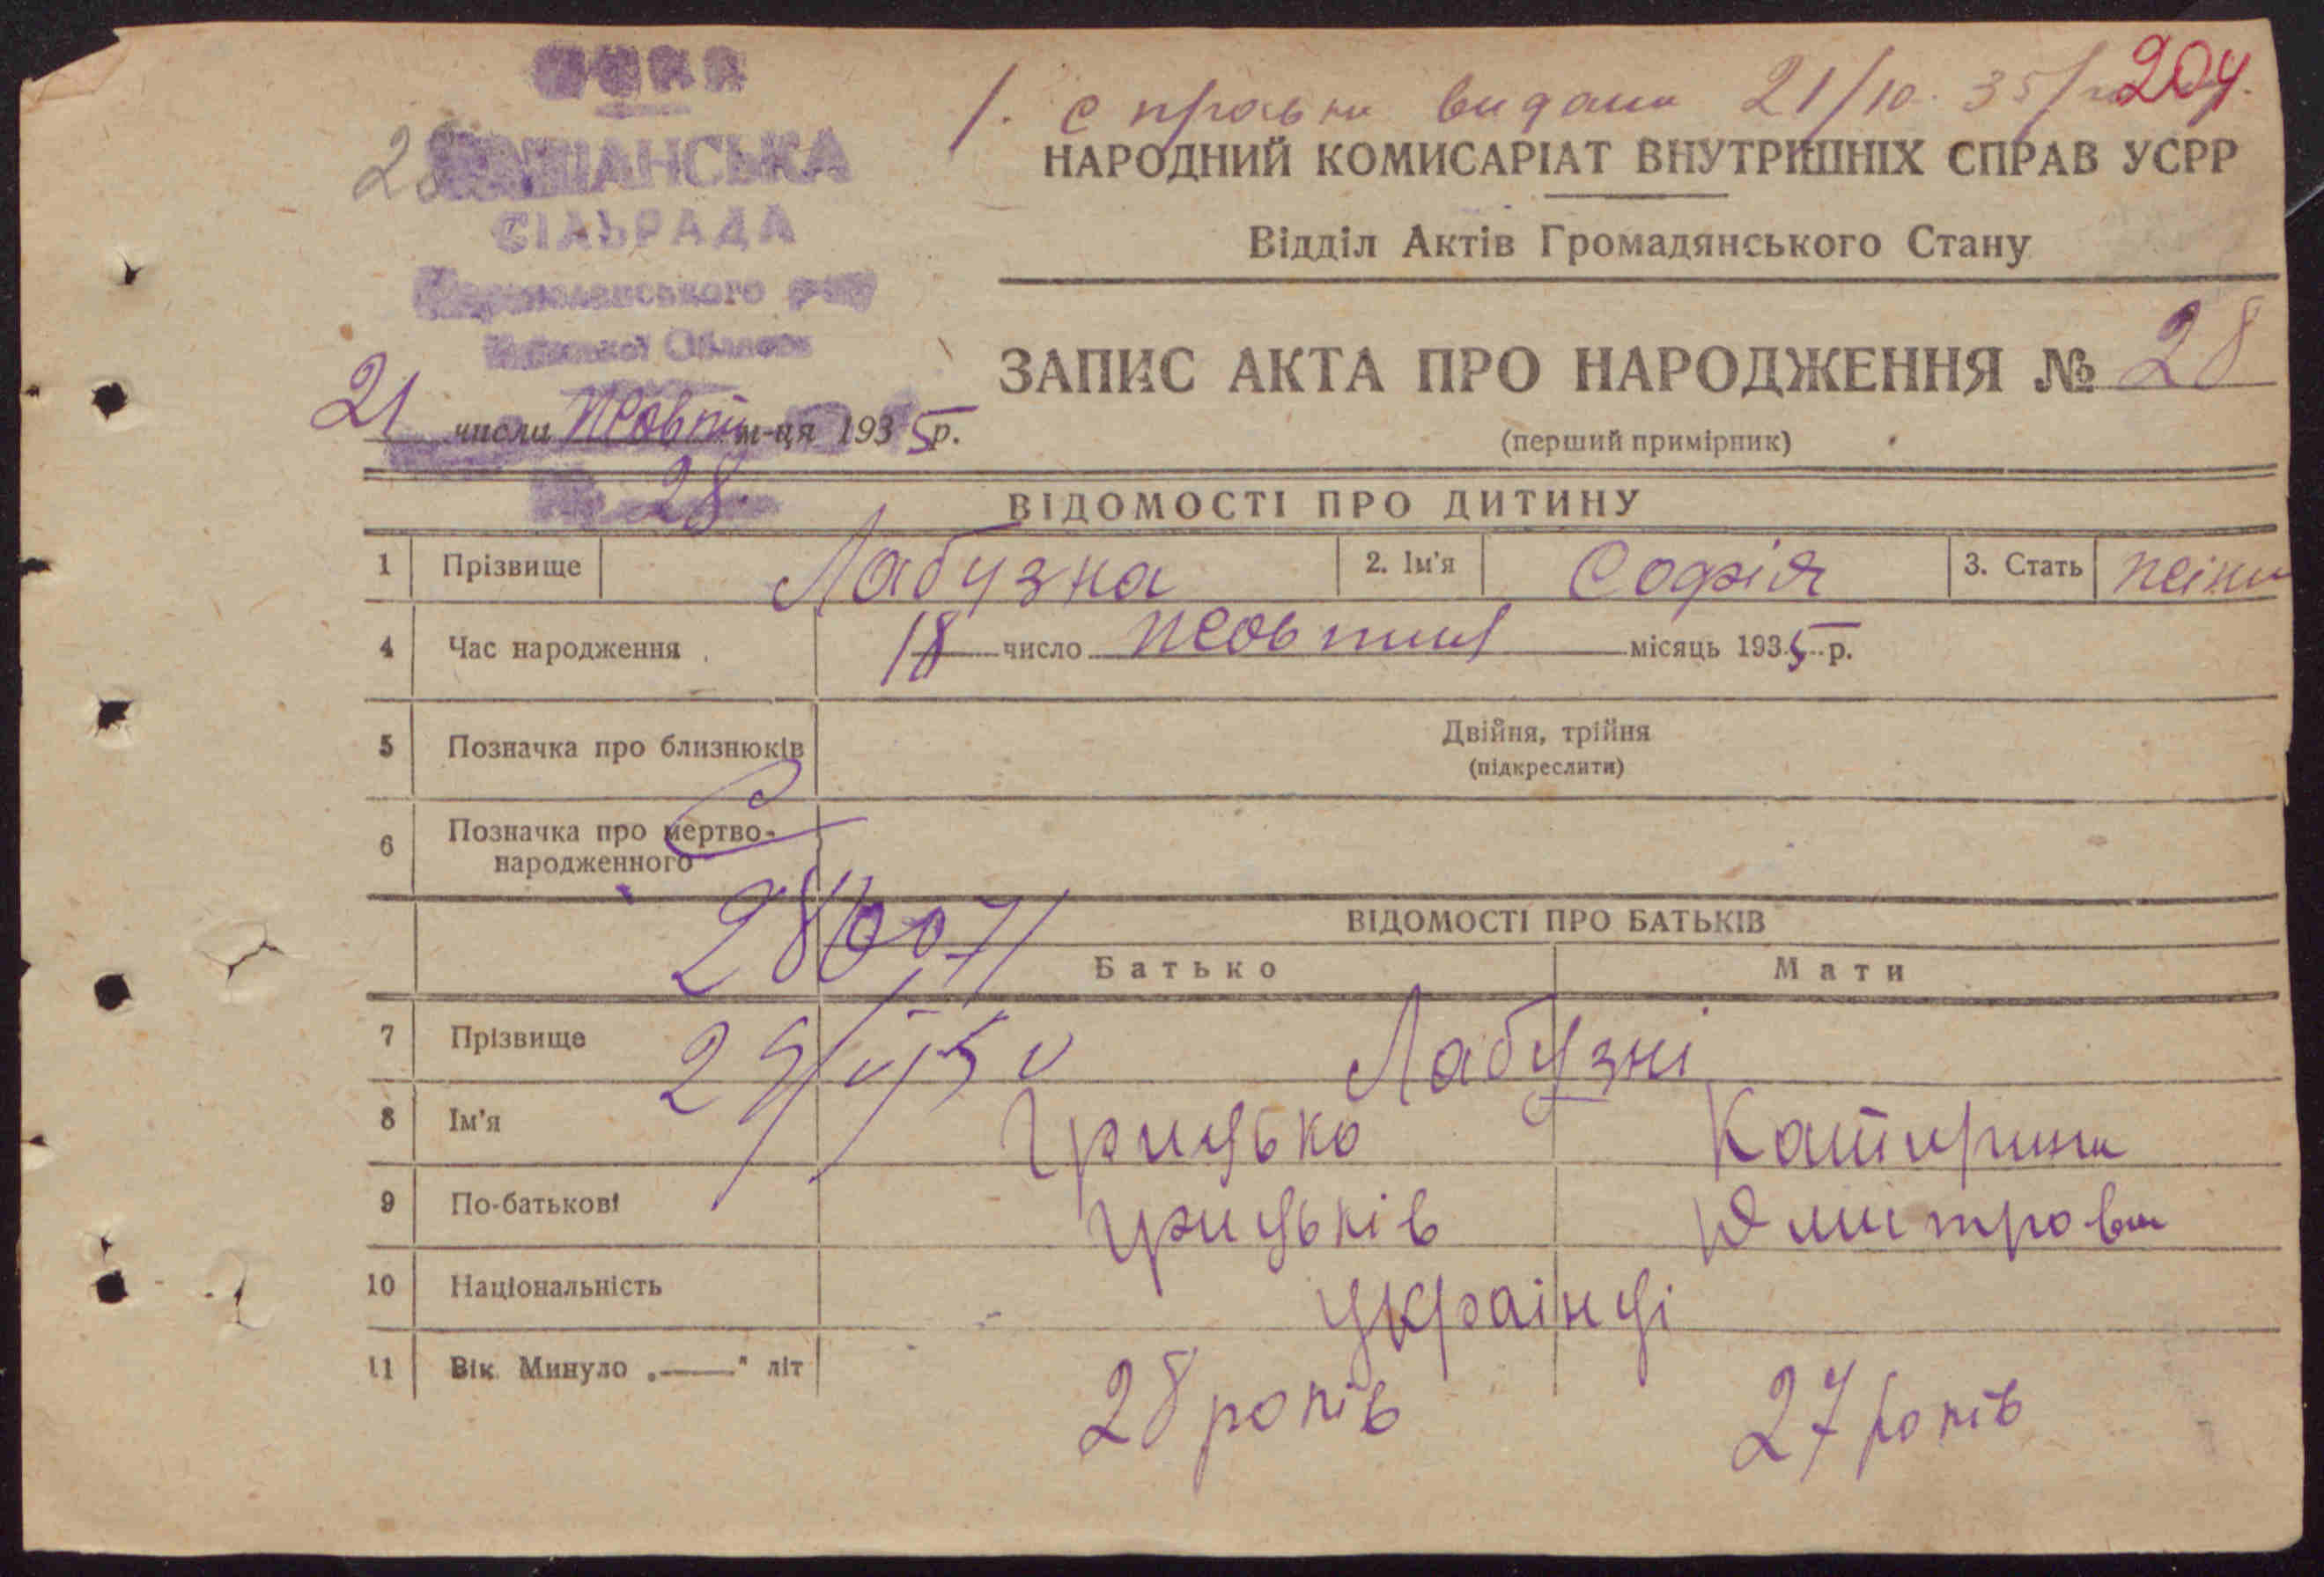 УСРР
СІЛЬРАДА
28
1. Справка видана 21/10. 35 р 204.
НАРОДНИЙ КОМИСАРІАТ ВНУТРІШНІХ СПРАВ УСРР
Відділ Актів Громадянського Стану
ЗАПИС АКТА ПРО НАРОДЖЕННЯ № 28
(перший примірник)
21 числа Жовтн м-ця 1935 р.
28.
ВІДОМОСТІ ПРО ДИТИНУ
1 Прізвище Лабузна 2. Ім'я Софія 3. Стать жіноч
4 Час народження 18 число жовтня місяць 1935 р.
5 Позначка про близнюків Двійня, трійня
(підкреслити)
6 Позначка про мертво-
народженного
ВІДОМОСТІ ПРО БАТЬКІВ
Батько Мати
7 Прізвище Лабузні
8 Ім'я Грицько Катирина
9 По-батькові Грицьків Дмитровна
10 Національність українці
11 Вік. Минуло „——" літ 28 років 27 років